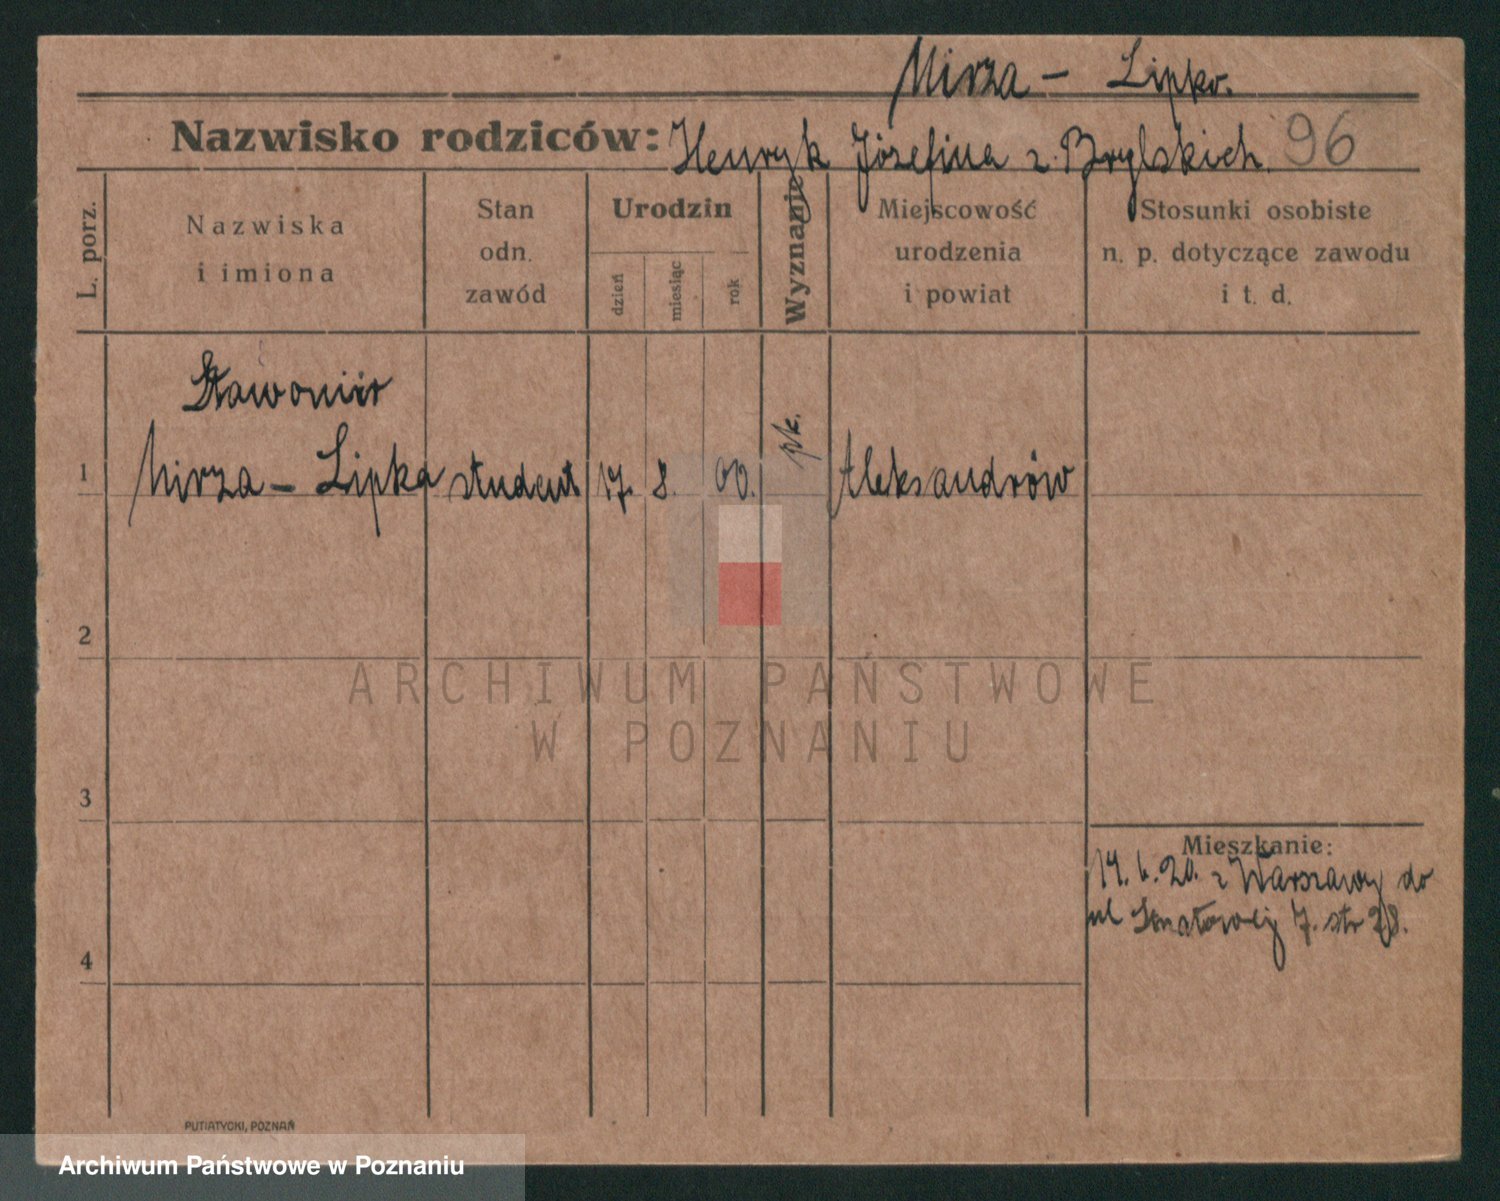 Mirza – Lipka.
Nazwisko rodziców: Henryk Józefina z Brylskich. 96
L. porz.
Nazwiska
i imiona
Stan
odn.
zawód
Urodzin
dzień
miesiąc
rok
Wyznanie
Miejscowość
urodzenia
i powiat
Stosunki osobiste
n. p. dotyczące zawodu
i t. d.
Sławomir
1 Mirza – Lipka student 17. 8. 00. rk. Aleksandrów
2
3
4
Mieszkanie:
14. 6. 20. z Warszawy do
ul Senatorskiej 7. str 28.
PUTIATYCKI, POZNAŃ
ARCHIWUM PAŃSTWOWE
W POZNANIU
Archiwum Państwowe w Poznaniu